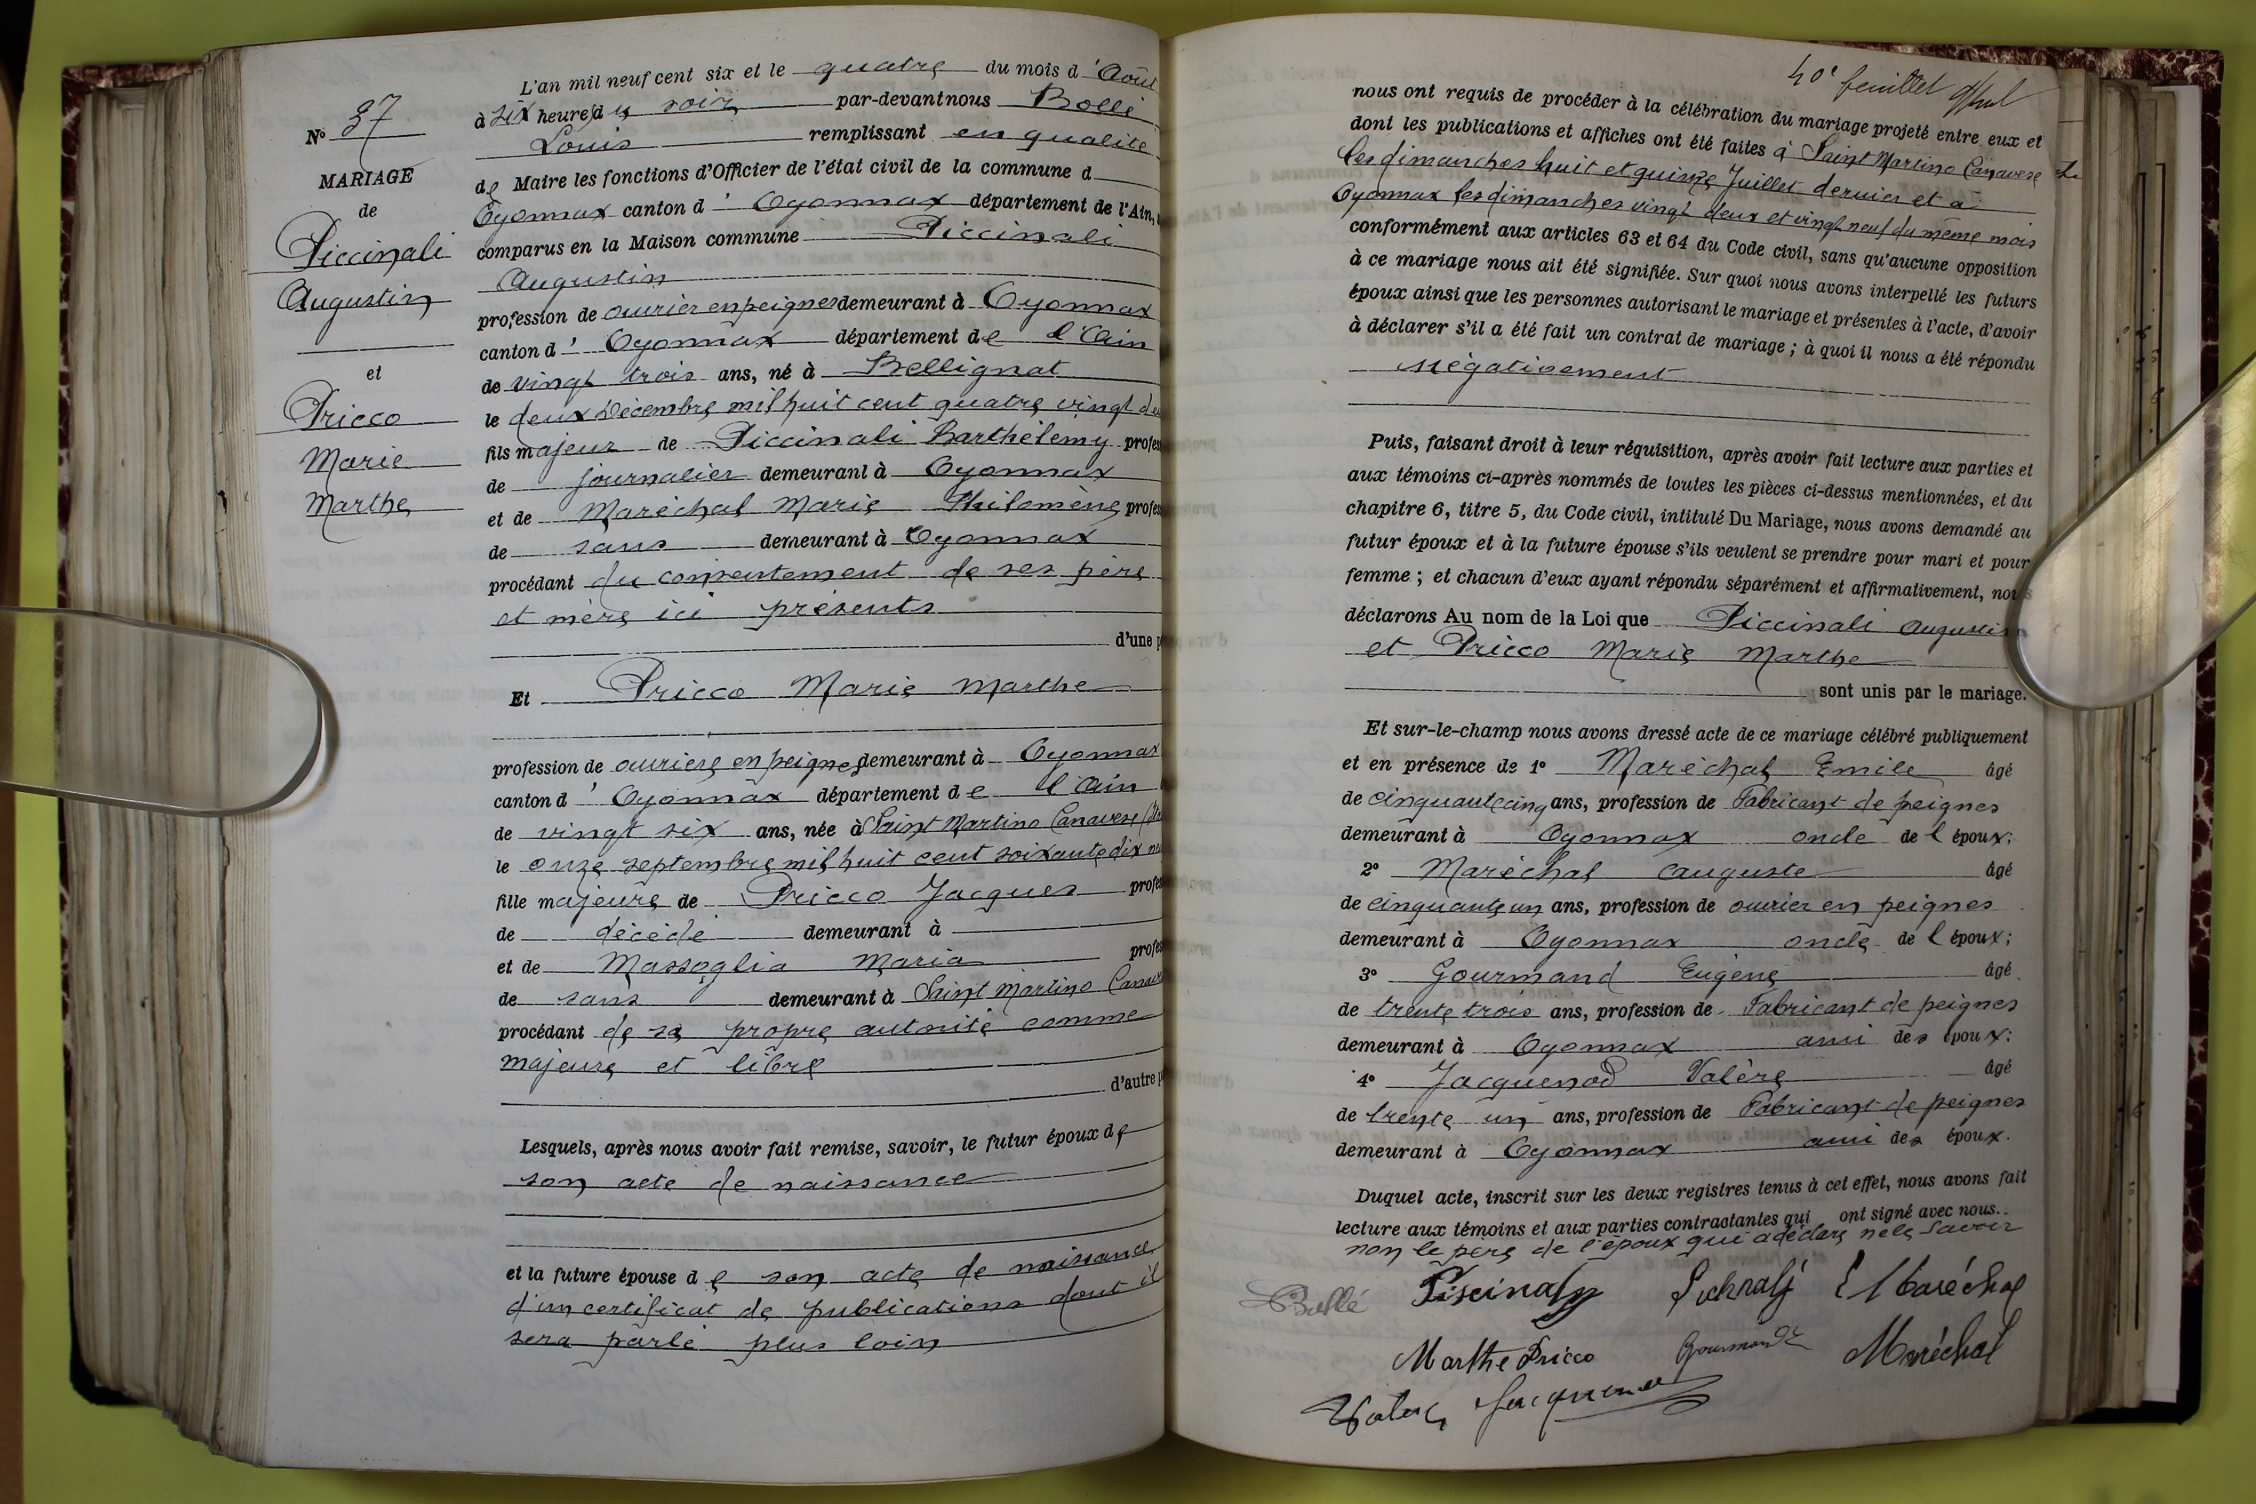 N° 37
MARIAGE
de
Piccinali
Augustin
et
Pricco
Marie
Marthe
L'an mil neuf cent six et le quatre du mois d'Août
à six heures du soir par-devant nous Bollé
Louis remplissant en qualité
de Maire les fonctions d'Officier de l'état civil de la commune d
Oyonnax canton d'Oyonnax département de l'Ain,
comparus en la Maison commune Piccinali
Augustin
profession de ouvrier en peignes demeurant à Oyonnax
canton d'Oyonnax département de l'Ain
de vingt trois ans, né à Bellignat
le deux Décembre mil huit cent quatre vingt
fils majeur de Piccinali Barthélemy
de journalier demeurant à Oyonnax
et de Maréchal Marie Philomène
de sans demeurant à Oyonnax
procédant du consentement de ses père
et mère ici présents
d'une
Et Pricco Marie Marthe
profession de ouvrière en peignes demeurant à Oyonnax
canton d'Oyonnax département de l'Ain
de vingt six ans, née à Saint Martino Canavese
le onze septembre mil huit cent soixante dix
fille majeure de Pricco Jacques
de décédé demeurant à
et de Massoglia Maria
de sans demeurant à Saint Martino
procédant de sa propre autorité comme
majeure et libre
d'autre
Lesquels, après nous avoir fait remise, savoir, le futur époux de
son acte de naissance
et la future épouse de son acte de naissance
d'un certificat de publications dont il
sera parlé plus loin
40e feuillet
nous ont requis de procéder à la célébration du mariage projeté entre eux et
dont les publications et affiches ont été faites à Saint Martino Canavese
les dimanches huit et quinze Juillet dernier et à
Oyonnax les dimanches vingt deux et vingt neuf du même mois
conformément aux articles 63 et 64 du Code civil, sans qu'aucune opposition
à ce mariage nous ait été signifiée. Sur quoi nous avons interpellé les futurs
époux ainsi que les personnes autorisant le mariage et présentes à l'acte, d'avoir
à déclarer s'il a été fait un contrat de mariage ; à quoi il nous a été répondu
négativement
Puis, faisant droit à leur réquisition, après avoir fait lecture aux parties et
aux témoins ci-après nommés de toutes les pièces ci-dessus mentionnées, et du
chapitre 6, titre 5, du Code civil, intitulé Du Mariage, nous avons demandé au
futur époux et à la future épouse s'ils veulent se prendre pour mari et pour
femme ; et chacun d'eux ayant répondu séparément et affirmativement, nous
déclarons Au nom de la Loi que Piccinali Augustin
et Pricco Marie Marthe
sont unis par le mariage.
Et sur-le-champ nous avons dressé acte de ce mariage célébré publiquement
et en présence de 1° Maréchal Emile âgé
de cinquante cinq ans, profession de Fabricant de peignes
demeurant à Oyonnax oncle de l'époux;
2° Maréchal Auguste âgé
de cinquante un ans, profession de ouvrier en peignes
demeurant à Oyonnax oncle de l'époux;
3° Gourmand Eugène âgé
de trente trois ans, profession de Fabricant de peignes
demeurant à Oyonnax ami des époux;
4° Jacquenod Valère âgé
de trente un ans, profession de Fabricant de peignes
demeurant à Oyonnax ami des époux.
Duquel acte, inscrit sur les deux registres tenus à cet effet, nous avons fait
lecture aux témoins et aux parties contractantes qui ont signé avec nous.
non le père de l'époux qui a déclaré ne le savoir
Bollé E Maréchal
Marthe Pricco Gourmand Maréchal